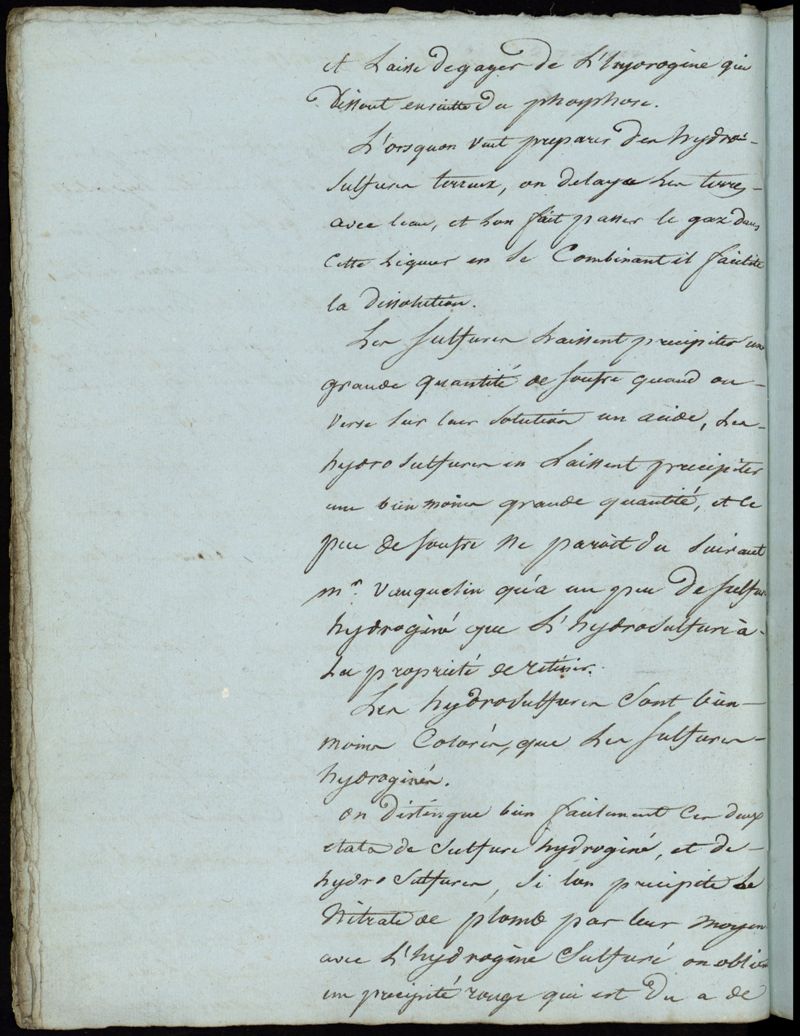 et Laisse degager de L'hydrogène qui
Dissout ensuitte du phosphore.
L'orsquon veut preparer des hydro-
Sulfures terreux, on delaye Les terres
avec leau, et Lon fait passer le gaz dans
Cette Liqueur en se Combinant il facilite
la dissolution.
Les Sulfures Laissent precipiter une
grande quantité de soufre quand on
verse sur leur solution un acide, Les
hydrosulfures en Laissent precipiter
une bien moins grande quantité, et ce
peu de soufre ne paroit du suivant
mr. vauquelin qu'a un peu de sulfure
hydrogèné que L'hydrosulfure à
La propriété de retenir.
Les hydrosulfures sont bien
moins Colorés, que Les sulfures
hydroginés.
on distingue bien facilement Ces deux
etats de sulfure hydroginé, et de
hydrosulfures, si lon precipite Le
Nitrate de plomb par leur moyen
avec L'hydrogène sulfuré on obtien
un precipité rouge qui est du a de